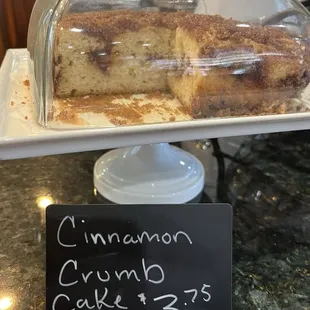 Cinnamon
Crumb
Cake $3.75